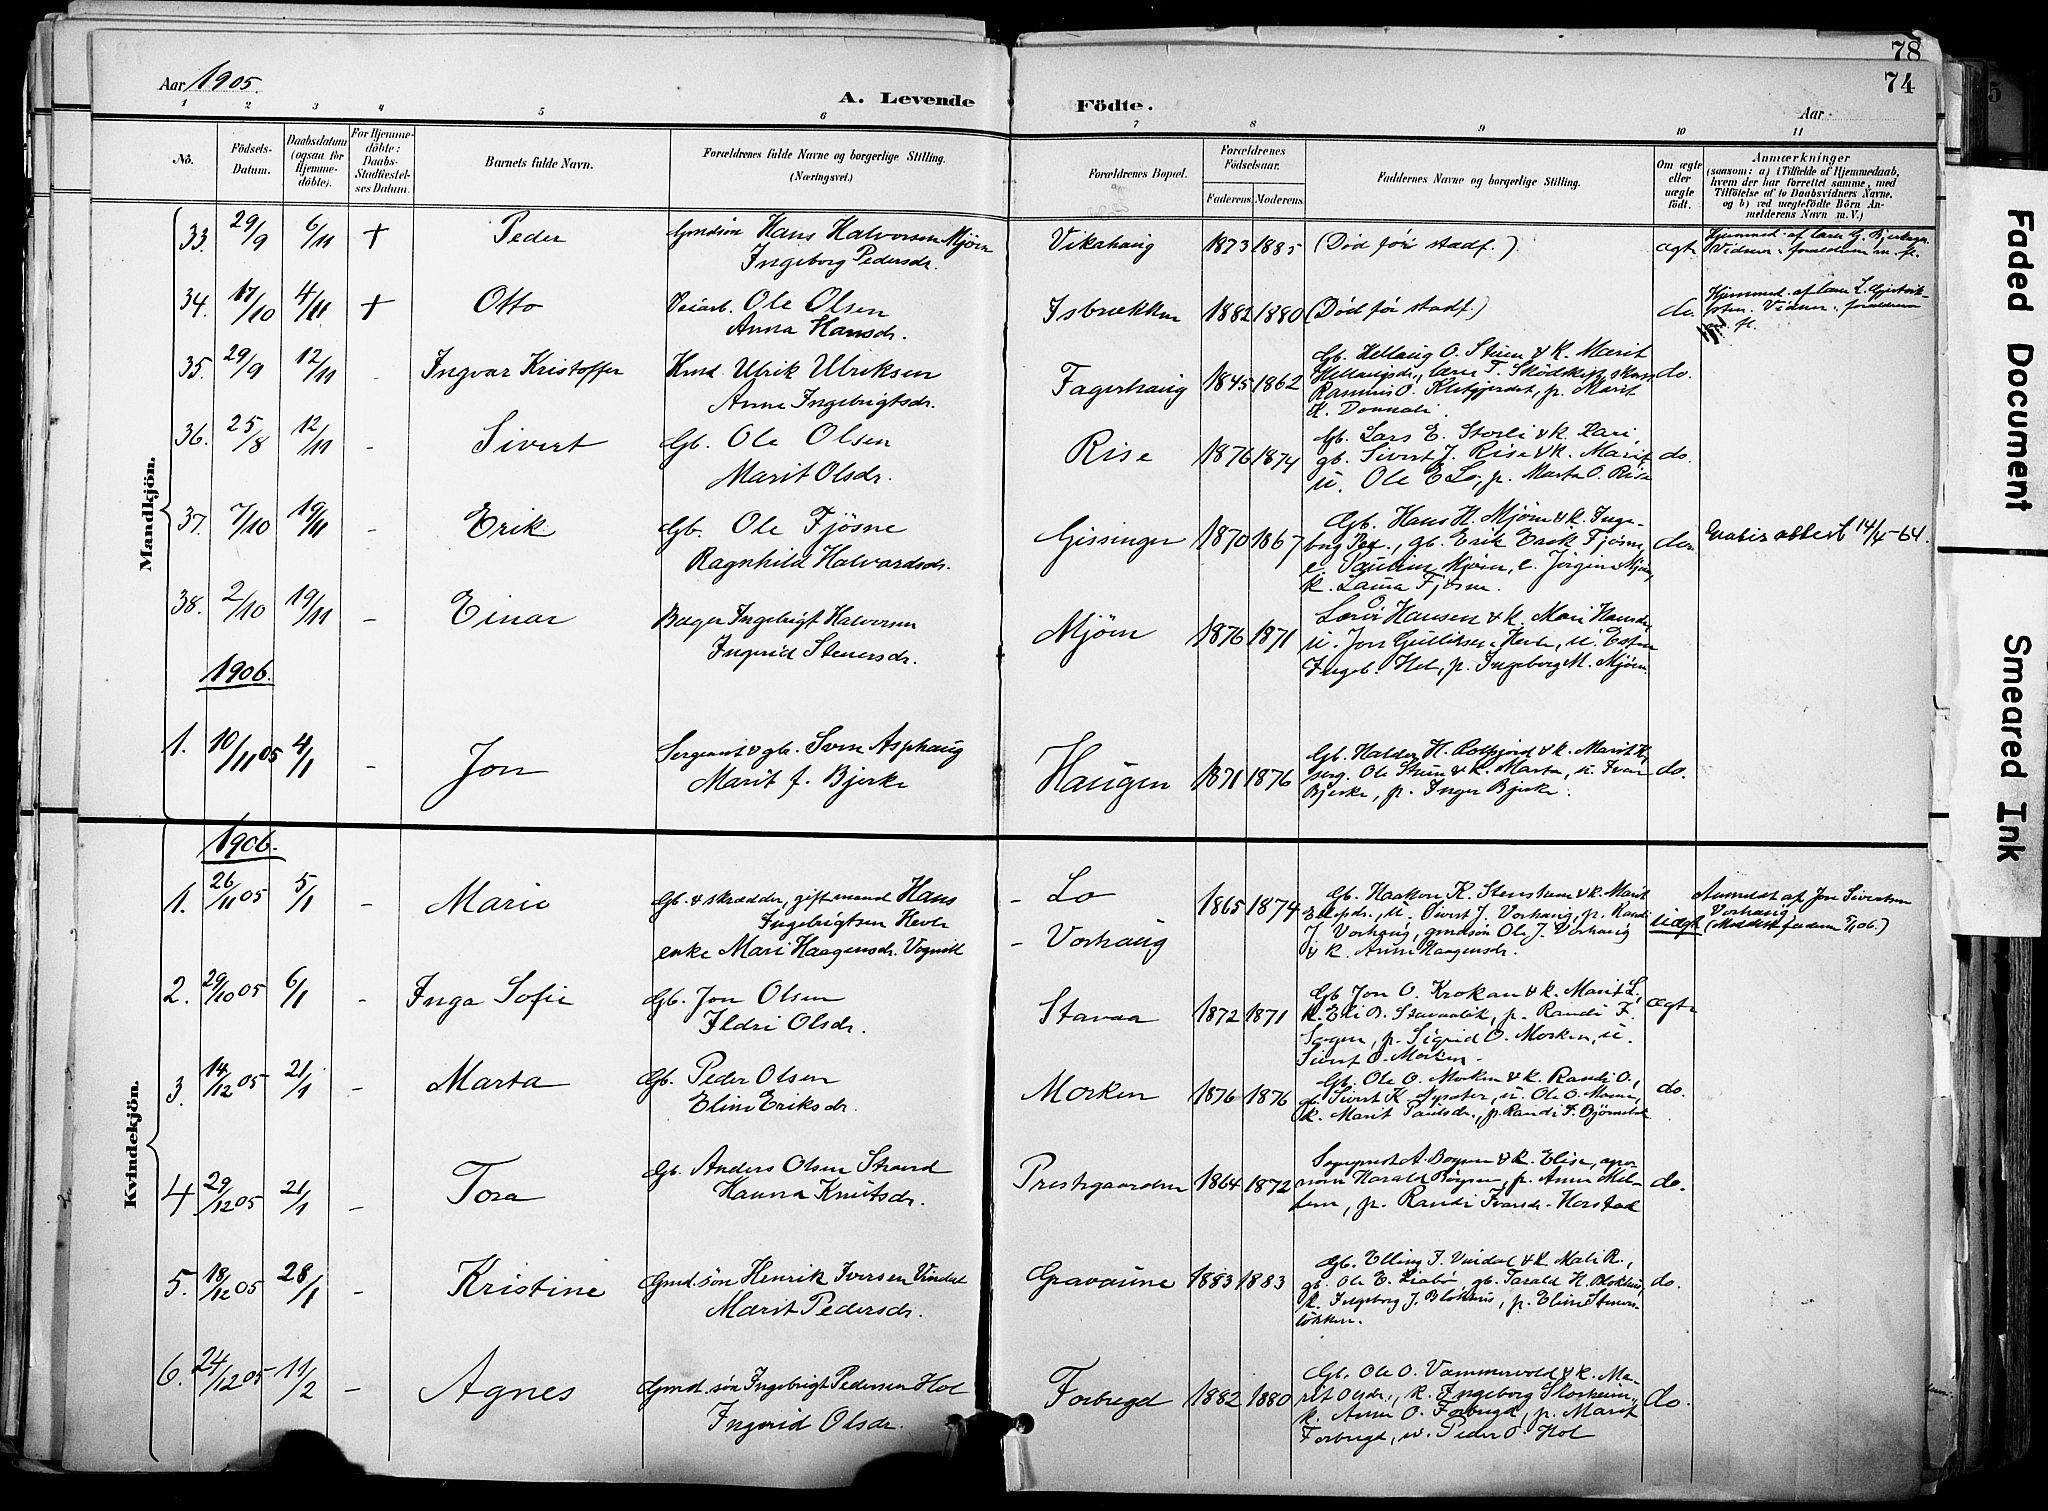 78
74
Aar 1905.
A. Levende Födte.
Aar
1 2 3 4 5 6 7 8 9 10 11
No.
Födsels-Datum.
Daabsdatum (ogsaa for Hjemmedöbte).
For Hjemmedöbte: Daabs-Stadfæstelses Datum.
Barnets fulde Navn.
Forældrenes fulde Navne og borgerlige Stilling. (Næringsvei.)
Forældrenes Bopæl.
Forældrenes Födselsaar.
Faderens. Moderens.
Faddernes Navne og borgerlige Stilling.
Om ægte eller uægte födt.
Anmærkninger (saasom: a) i Tilfælde af Hjemmedaab, hvem der har forrettet samme, med Tilföielse af to Daabsvidners Navne, og b) ved uægtefödte Börn Anmelderens Navn m. V.)
Mandkjön.
33. 29/9 6/11 + Peder
Gmdsön Hans Halvorsen Mjöen
Ingeborg Pedersdr.
Vikahaug 1873 1885 (Död för stadf.) ægte
Hjemmed. af lærer G.
Vidner: forældrene m. fl.
34. 17/10 4/11 + Otto
Veiarb. Ole Olsen
Anna Hansdr.
Isbrækken 1882 1880 (Död för stadf.) do.
Hjemmed. af lærer L.
Vidner: forældrene
m. fl.
35. 29/9 12/11 - Ingvar Kristoffer
Hmd Ulrik Ulriksen
Anne Ingebrigtsdr.
Fagerhaug 1845 1862
Gb. Hellaug O. Stuen & k. Marit
Hellaugsdr., lærer T.
Rasmus O. p. Marit
K. Donnali.
do.
36. 25/8 12/11 - Sivert
Gb. Ole Olsen
Marit Olsdr.
Rise 1876 1874
Gb. Lars E. Storli & k. Kari,
gb. Sivert J. Rise & k. Marit
u. Ole E Lo, p. Marta O. Rise
do.
37. 7/10 19/11 - Erik
Gb. Ole Fjösne
Ragnhild Halvardsdr.
Gissinger 1870 1867
Gb. Hans H. Mjöen & k. Inge-
borg Ped., gb. Erik Erik. Fjösne,
e. Pauline Mjöen, e. Jörgine Mjöen,
k. Laura Fjösne.
do.
Gratis attest 14/4-64.
38. 2/10 19/11 - Einar
Bager Ingebrigt Halvorsen
Ingrid Steuersdr.
Mjöen 1876 1871
Lærer Hansen & k. Mari Hansdr.
u. Jon Gulliksen Hevle, u. Esten
Ingeb. Hol, p. Ingeborg M. Mjöen.
1906.
1. 10/11 05 4/1 - Jon
Sergeant & gb. Sven Asphaug
Marit f. Bjerke
Haugen 1871 1876
Gb. Haldor H. & k. Marit H.,
serg. Ole Stuen & k. Marta, u. Ivar
Bjerke, p. Inger Bjerke.
do.
Kvindekjön.
1906.
1. 26/11 05 5/1 - Marie
Gb. & skrædder, gift mand Hans
Ingebrigtsen Hevle
enke Mari Haagensdr. Vognill
- Lo
- Vorhaug
1865 1874
Gb. Haakon K. Stenshem & k. Marit
u. Sivert J. Vorhaug, p. Randi
J. Vorhaug, gmdsön Ole J. Vorhaug
& k. Anne Haagensdr.
uægte
Anmeldt af Jon Sivertsen
Vorhaug
2. 29/10 05 6/1 - Inga Sofie
Gb. Jon Olsen
Ildri Olsdr.
Stavaa 1872 1871
Gb. Jon O. Krokan & k. Marit L.,
k. Eli B. p. Randi F.
p. Sigrid O. Morken, u.
Sivert O. Morken.
ægte
3. 14/12 05 21/1 - Marta
Gb. Peder Olsen
Eline Eriksdr.
Morken 1876 1876
Gb. Ole O. Morken & k. Randi O.,
gb. Sivert K. Nysæter, u. Ole O.
k. Marit Paulsdr., p. Randi F.
do.
4 29/12 05 21/1 - Tora
Gb. Anders Olsen Strand
Hanna Knutsdr.
Prestegaarden 1864 1872
Sogneprest A. Bøgsen & k. Elise,
Harald Bøgsen, p. Anne
p. Randi Ivarsdr. Horstad
do.
5. 18/12 05 28/1 - Kristine
Gmd.sön Henrik Iversen Vindal
Marit Pedersdr.
Gravaune 1883 1883
Gb. Elling I. Vindal & k. Mali R.,
gb. Ole E. Liabö, gb. Tarald H. Blokhus,
k. Ingeborg J. Blokhus, p. Eline
lökken.
do.
6. 24/12 05 11/2 - Agnes
Gmd.sön Ingebrigt Pedersen Hol
Ingrid Olsdr.
Forbregd 1882 1880
Gb. Ole O. Vammervold & k. Ma-
rit Olsdr., k. Ingeborg Skorheim,
k. Anne O. Forbregd, p. Marit
Forbregd, u. Peder O. Hol
do.
Faded Document
Smeared Ink